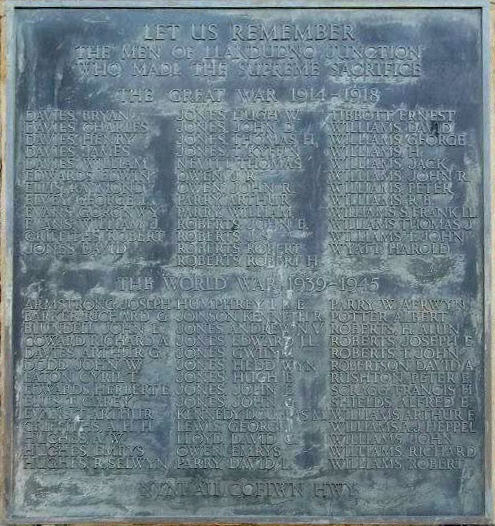 LET US REMEMBER
THE MEN OF LLANDUDNO JUNCTION
WHO MADE THE SUPREME SACRIFICE
THE GREAT WAR 1914-1918
DAVIES, BRYAN
DAVIES, CHARLES
DAVIES, HENRY
DAVIES, JAMES
DAVIES, WILLIAM
EDWARDS, EDWIN
ELLIS, RAYMOND
ELVEY, GEORGE
EVANS,
EVANS, WILLIAM J
ROBERT
JONES, DAVID
JONES, HUGH W.
JONES, JOHN D.
JONES, THOMAS H
JONES,
NEVITT, THOMAS
OWEN, J. R.
OWEN, JOHN R.
PARRY, ARTHUR
PARRY, WILLIAM
ROBERTS,
ROBERTS,
ROBERTS, ROBERT
ROBERTS, ROBERT H
TIBBOTT, ERNEST
WILLIAMS, DAVID
WILLIAMS, GEORGE
WILLIAMS, H.
WILLIAMS, JACK
WILLIAMS, JOHN R.
WILLIAMS, PETER
WILLIAMS, R.B.
WILLIAMS S FRANK LL
WILLIAMS, THOMAS J.
WILLIAMS, JOHN
WYATT, HAROLD
THE WORLD WAR 1939-1945
ARMSTRONG, JOSEPH
BARKER, RICHARD G
BLUNDELL, JOHN E.
COWARD, RICHARD A
DAVIES, ARTHUR G
DODD, JOHN W.
EATON, CYRIL
EDWARDS, HERBERT E
ELLIS, T.
EVANS, ARTHUR
GRIFFITHS, A.H.H
HUGHES, A.W.
HUGHES, EMRYS
HUGHES, R. SELWYN
HUMPHREY
JOINSON, KENNETH R
JONES, ANDREW V
JONES, EDWARD LL
JONES, GWILYM
JONES, HEDD WYN
JONES, HUGH
JONES, JOHN E
JONES, JOHN
KENNEDY, DOUGLAS
LEWIS, GEORGE
LLOYD, DAVID
OWEN, EMRYS
PARRY, DAVID
PARRY, W. AERWYN
POTTER, A. BERT
ROBERTS, H. ALUN
ROBERTS, JOSEPH E
ROBERTS, T. JOHN
ROBERTSON, DAVID A
RUSHTON, PETER B
SEAL, FRANCIS H
SHIELDS, ALFRED E
WILLIAMS, ARTHUR E
WILLIAMS, A.J. HEPPEL
WILLIAMS, JOHN
WILLIAMS, RICHARD
WILLIAMS, ROBERT
COFIWN HWY